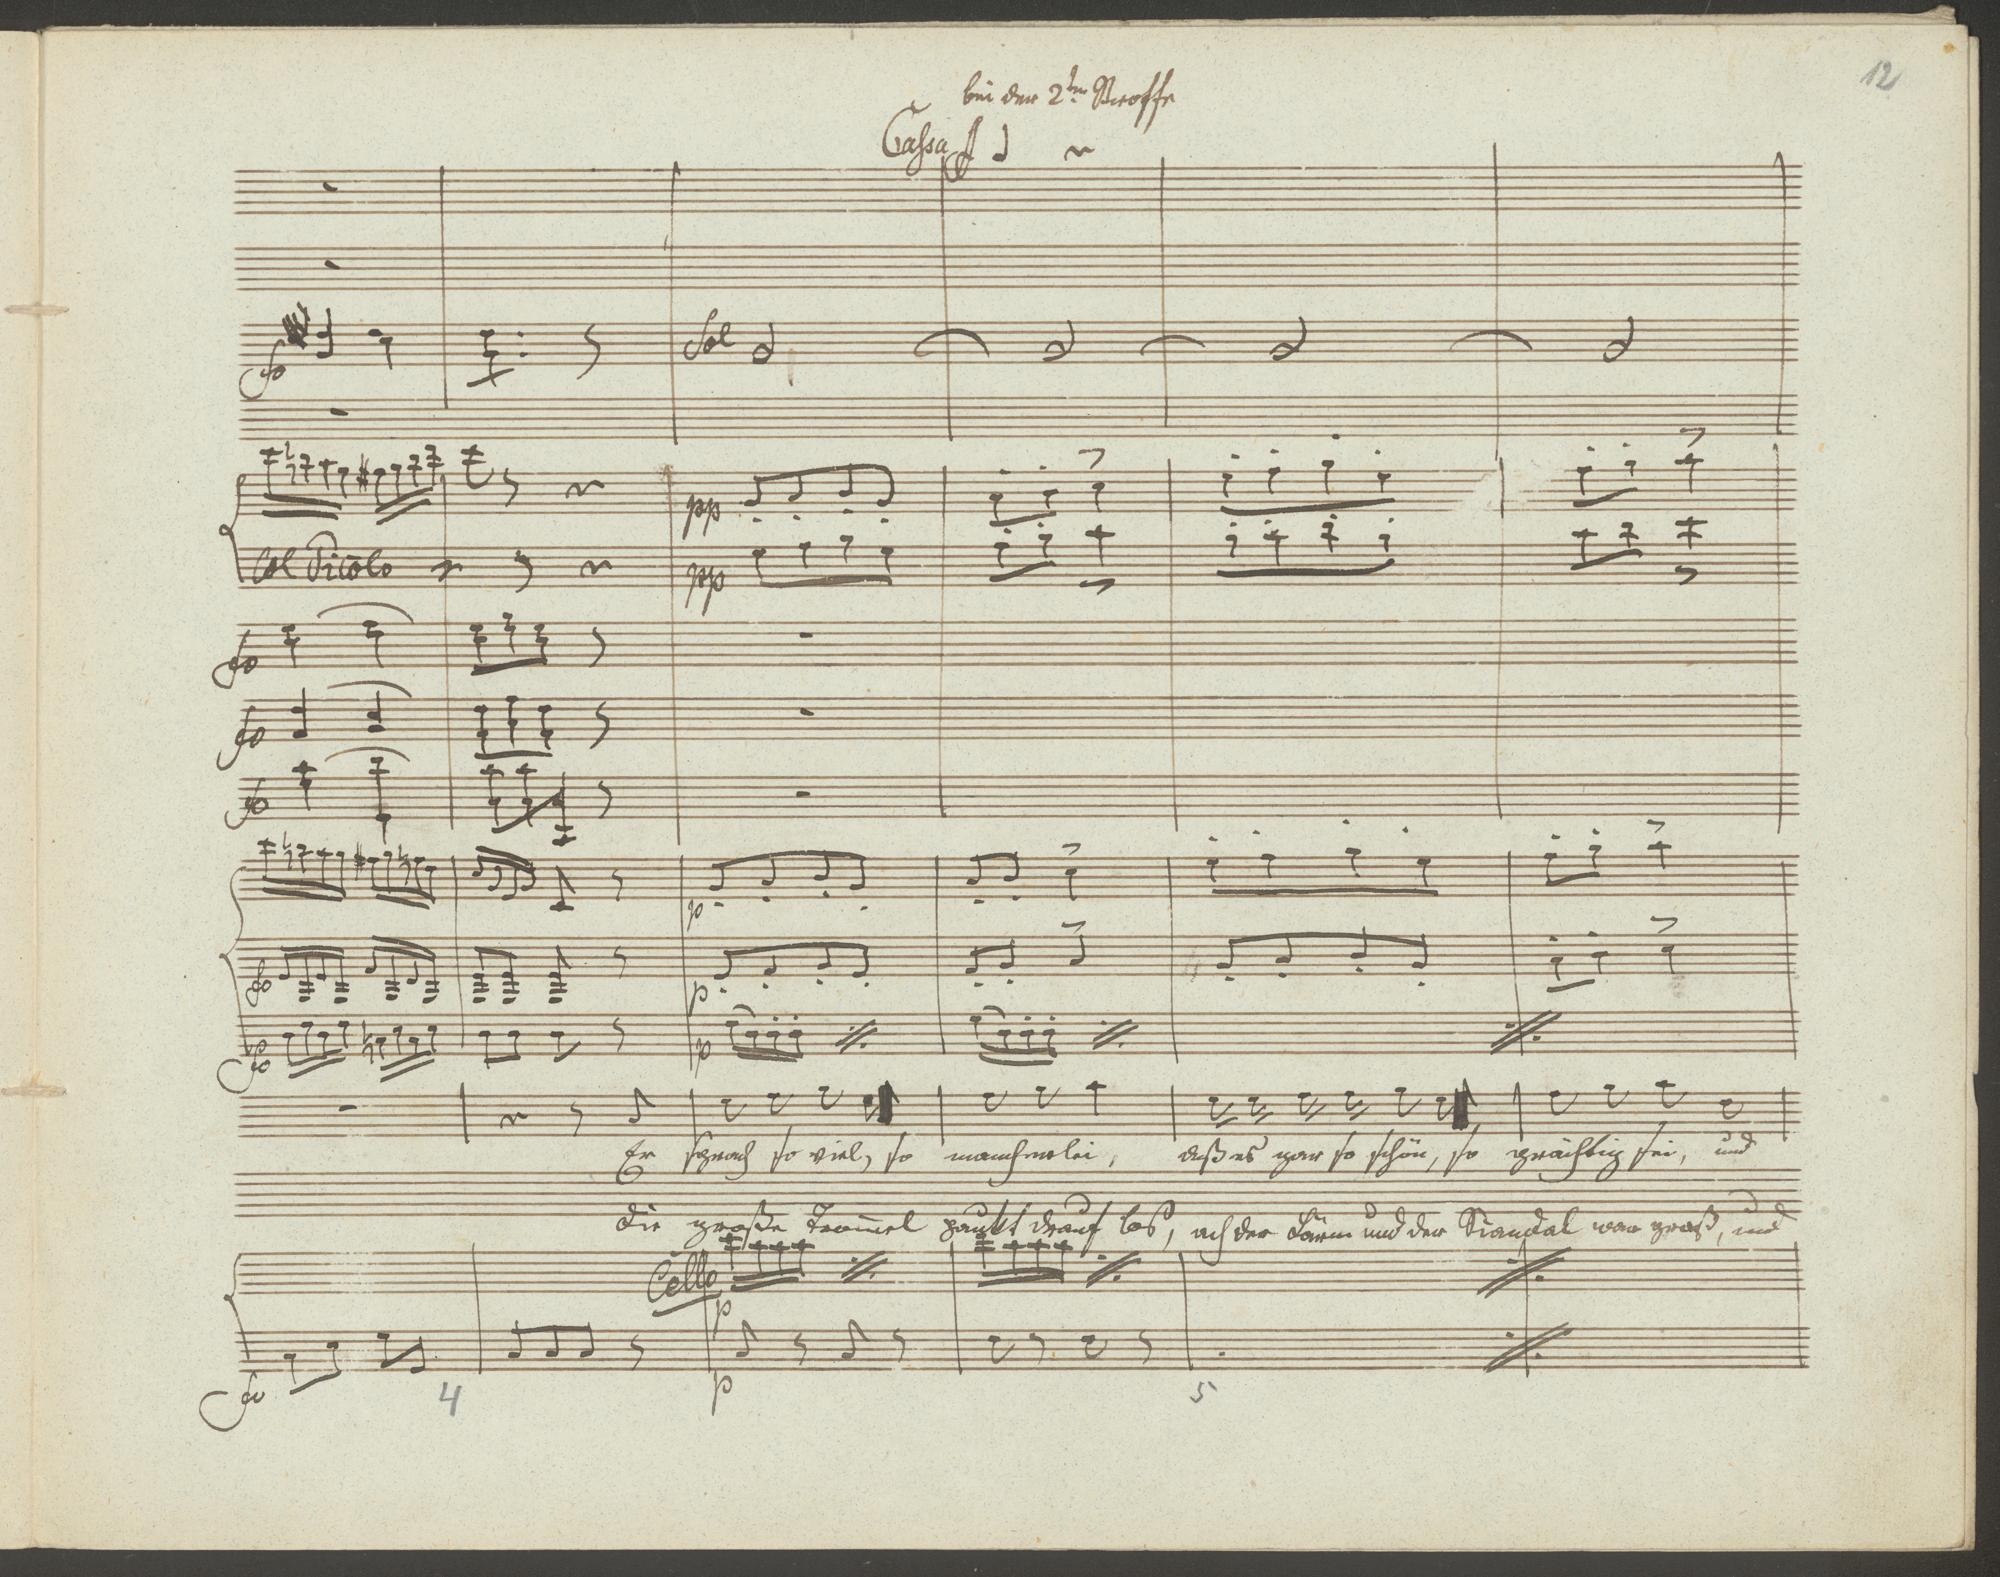 12
bei der 2ten Stroffe
Cassa ff
fo
Sol
pp
Col Picolo
pp
fo
fo
fo
p
fo
p
fo
p
Er sprach so viel, so mancherlei, daß es gar so schön, so prächtig sei, und
die große Trom̄el paukt drauf los, ach der Lärm und der Skandal war groß, und
Cello
p
fo
p
4
5